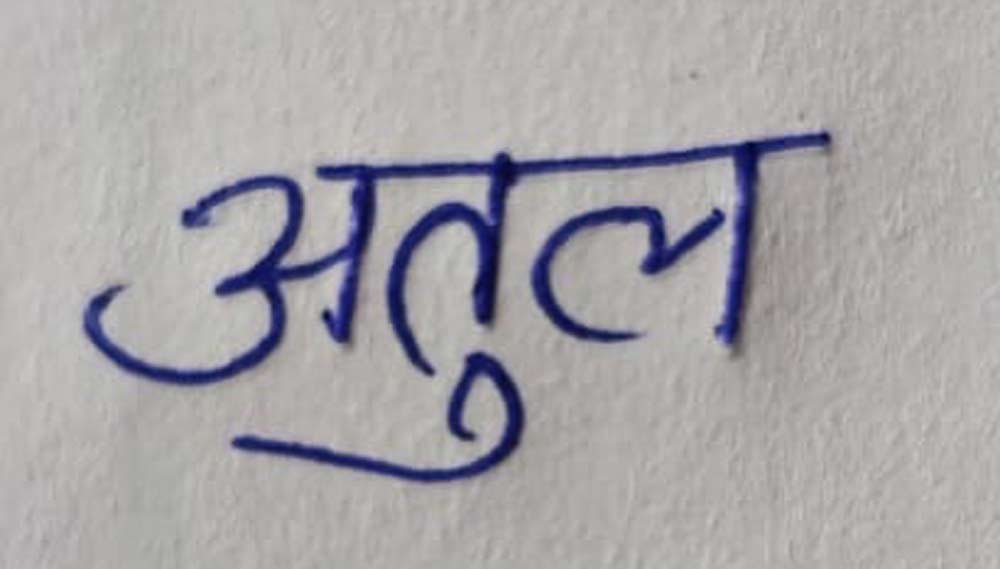 अतुल